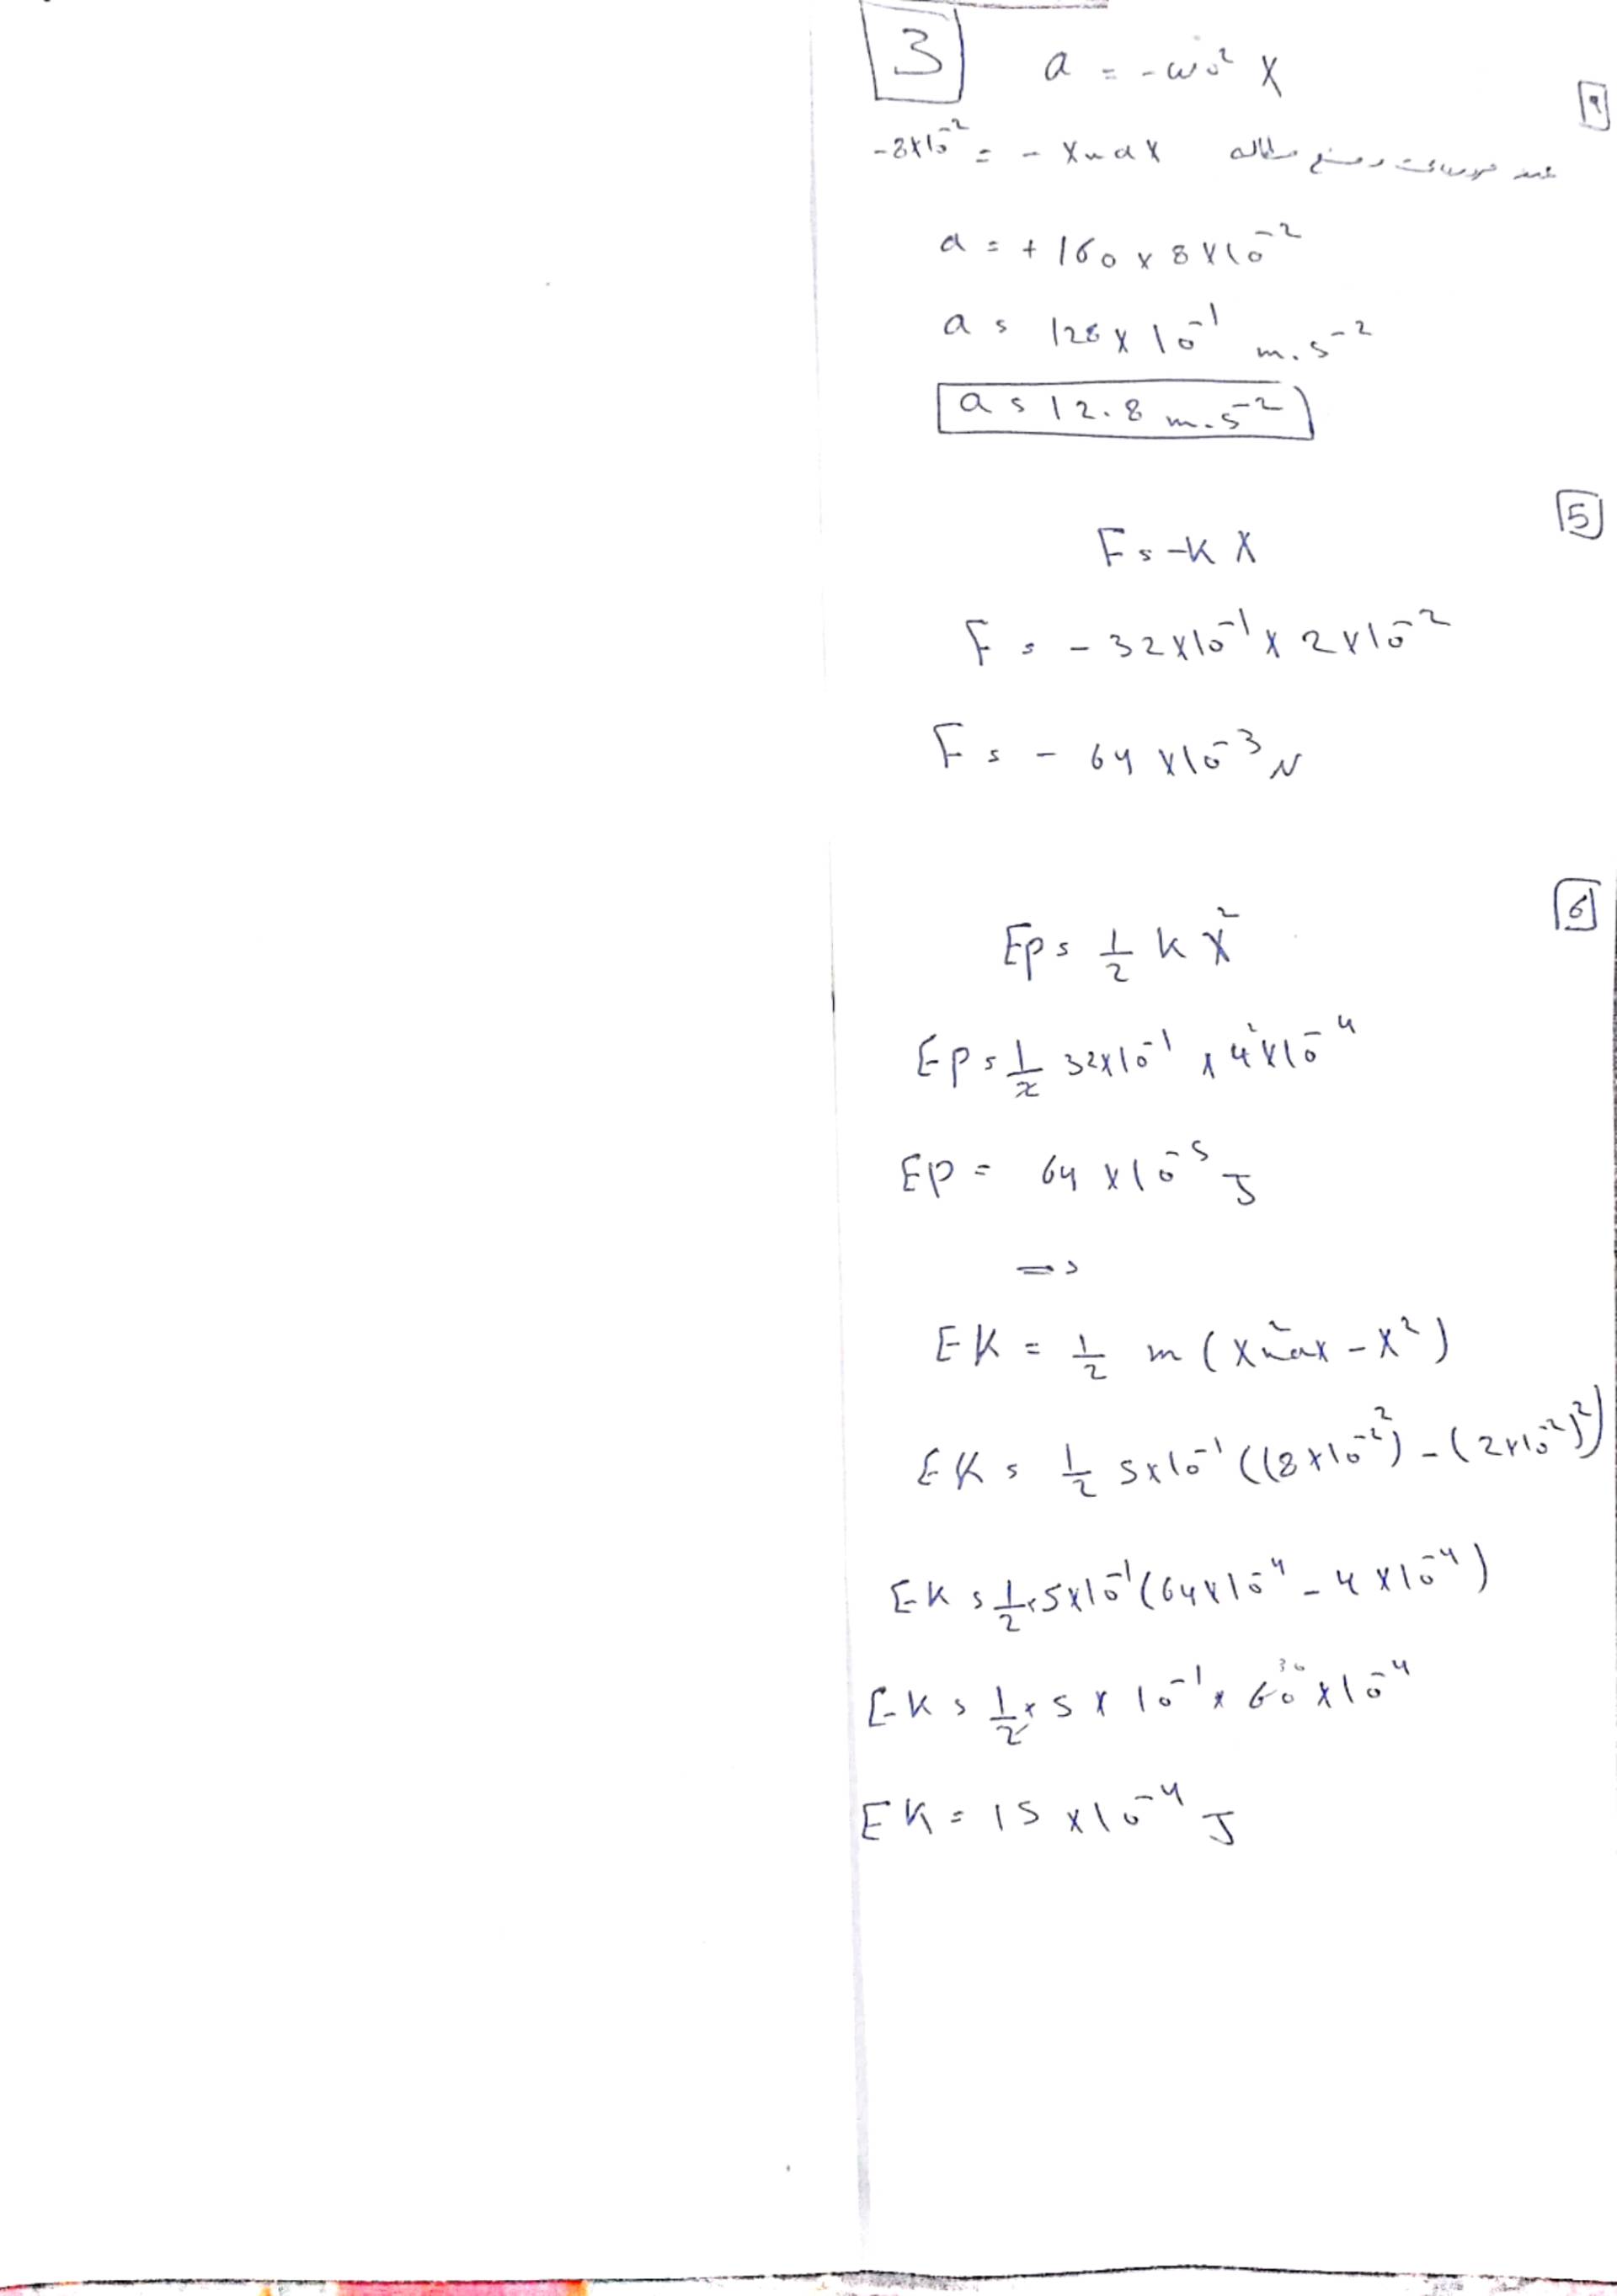 3
a = -ω₀² x
-8×10⁻² = - Xmax
a = + 160 × 8×10⁻²
a = 128 × 10⁻¹ m.s⁻²
a = 12.8 m.s⁻²
5
F = -K X
F = - 32×10⁻¹ × 2×10⁻²
F = - 64 ×10⁻³ N
6
Ep = 1/2 k X²
Ep = 1/2 32×10⁻¹ × 4×10⁻⁴
Ep = 64 ×10⁻⁵ J
⇒
EK = 1/2 m (Xmax² - X²)
EK = 1/2 5×10⁻¹ ((8×10⁻²)² - (2×10⁻²)²)
EK = 1/2 × 5×10⁻¹ (64×10⁻⁴ - 4×10⁻⁴)
EK = 1/2 × 5 × 10⁻¹ × 60 ×10⁻⁴
EK = 15 ×10⁻⁴ J